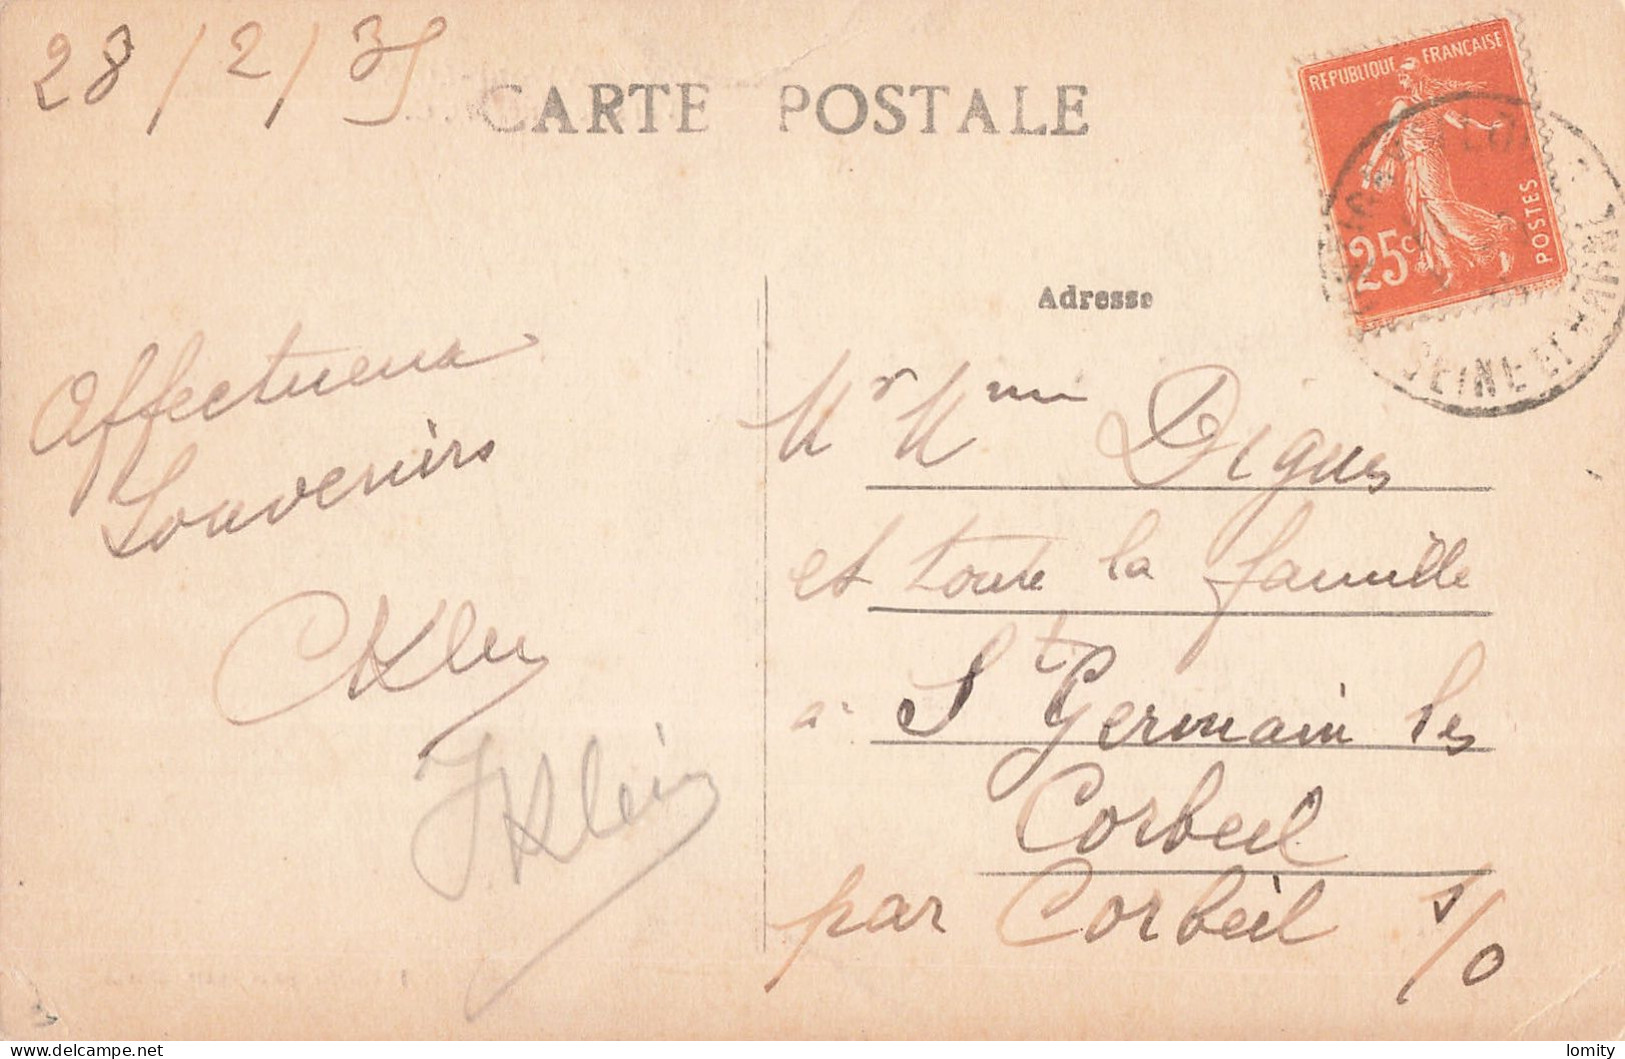 28/2/35
CARTE POSTALE
REPUBLIQUE FRANÇAISE
25c
POSTES
SEINE-ET-MARNE
Adresse
Affectueux
Souvenirs
CKlein
JKlein
Mr Mme Digues
et toute la famille
à St Germain les
Corbeil
par Corbeil S/O
delcampe.net
lomity